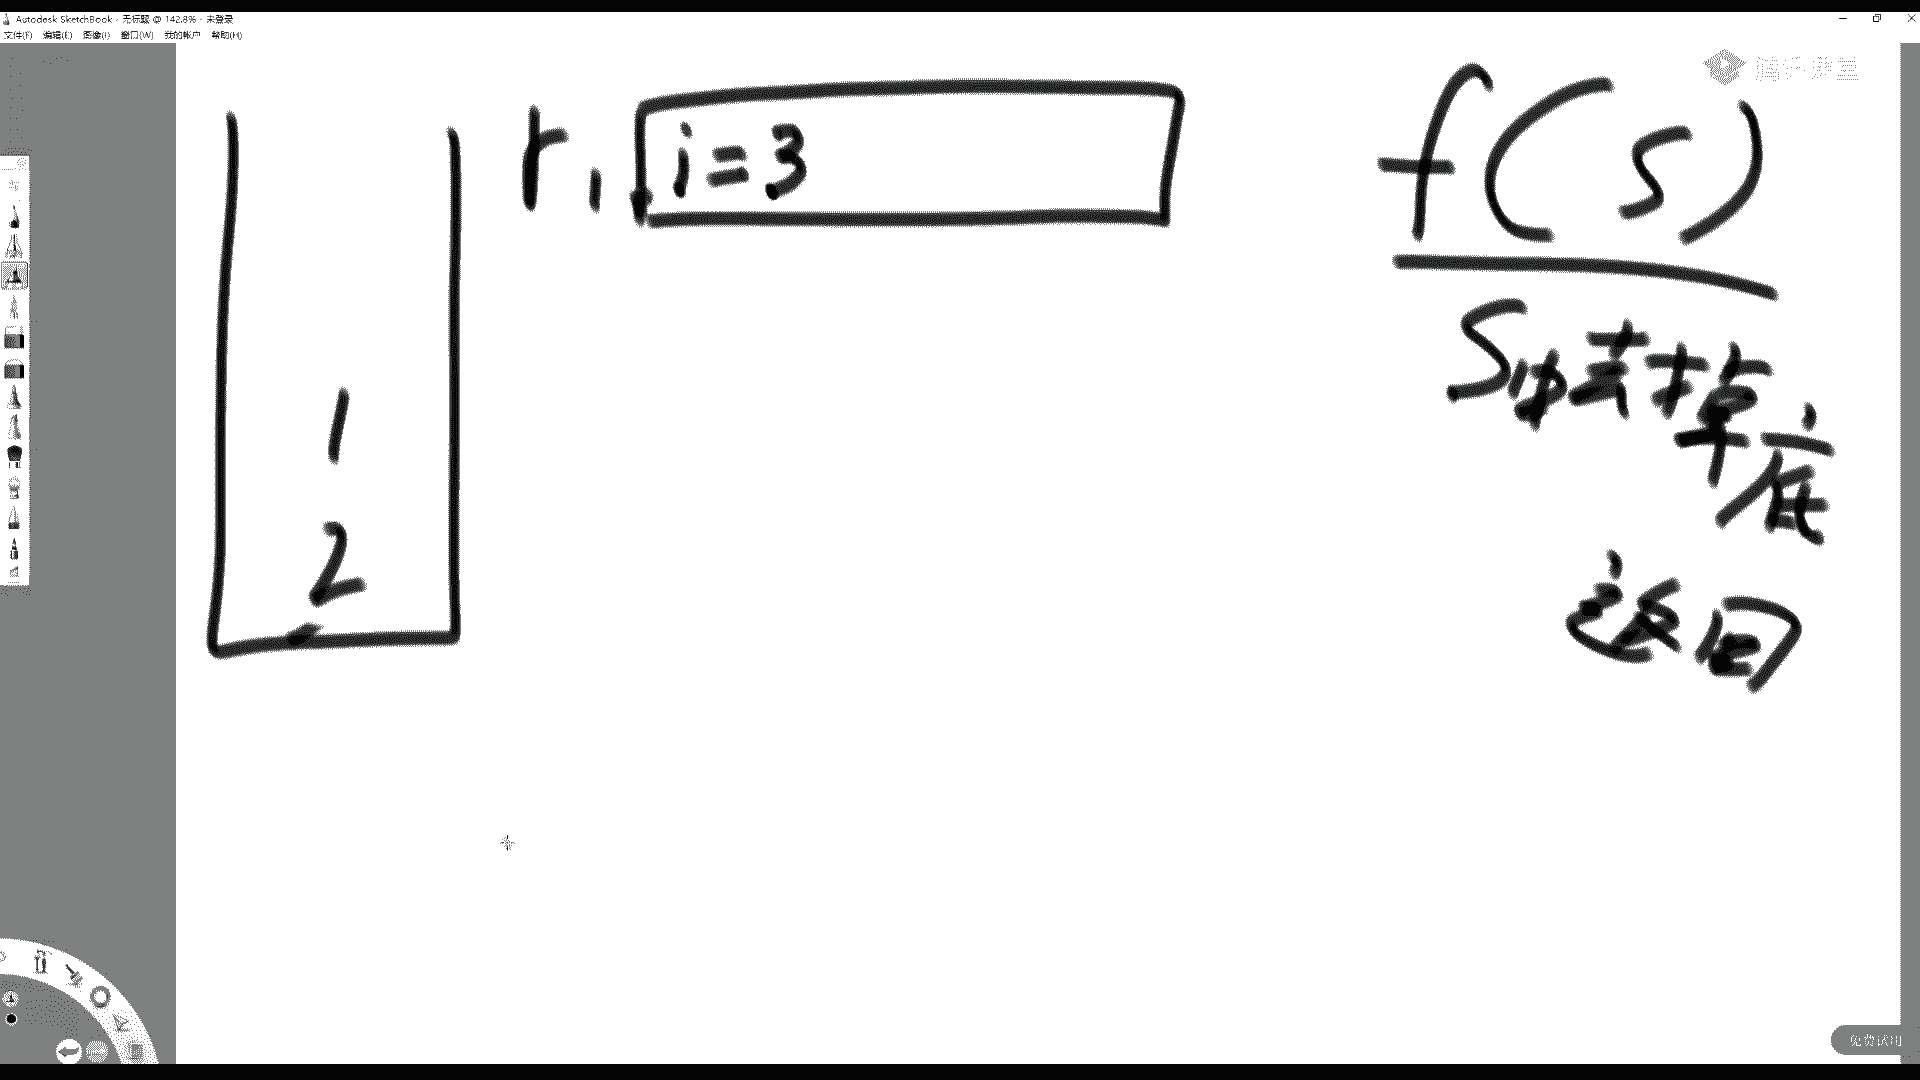 Autodesk SketchBook - 无标题 @ 142.8% - 未登录
文件(F) 编辑(E) 图像(I) 窗口(W) 我的帐户 帮助(H)
腾讯课堂
r, i=3
f( s )
S中去掉底
返回
1
2
免费试用